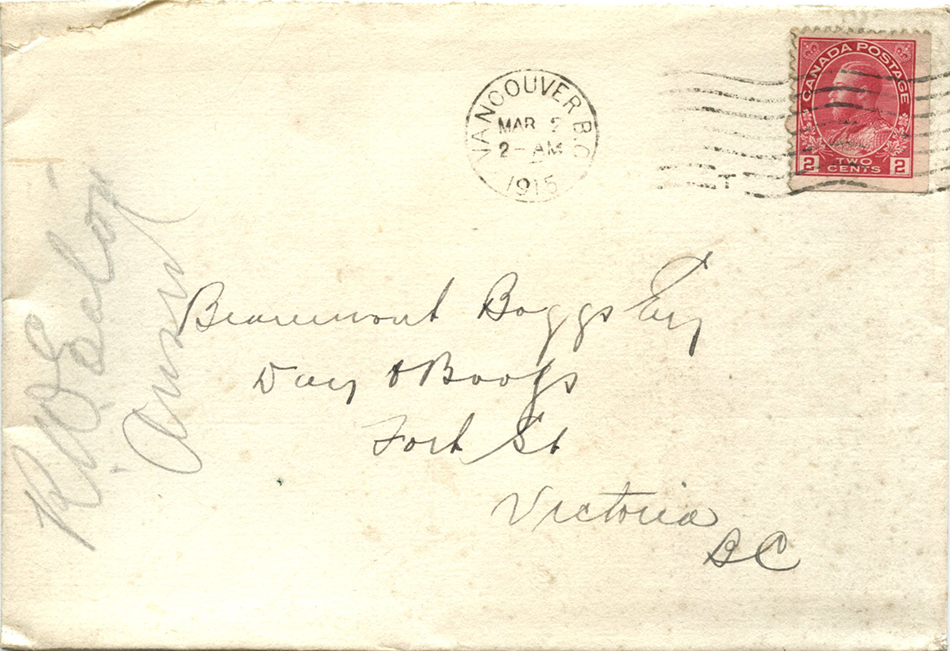 CANADA POSTAGE
2 TWO CENTS 2
VANCOUVER B.C.
MAR 2
2 - AM
1915
T
Beaumont Boggs Esq
Day & Boggs
Fort St
Victoria
BC
R W